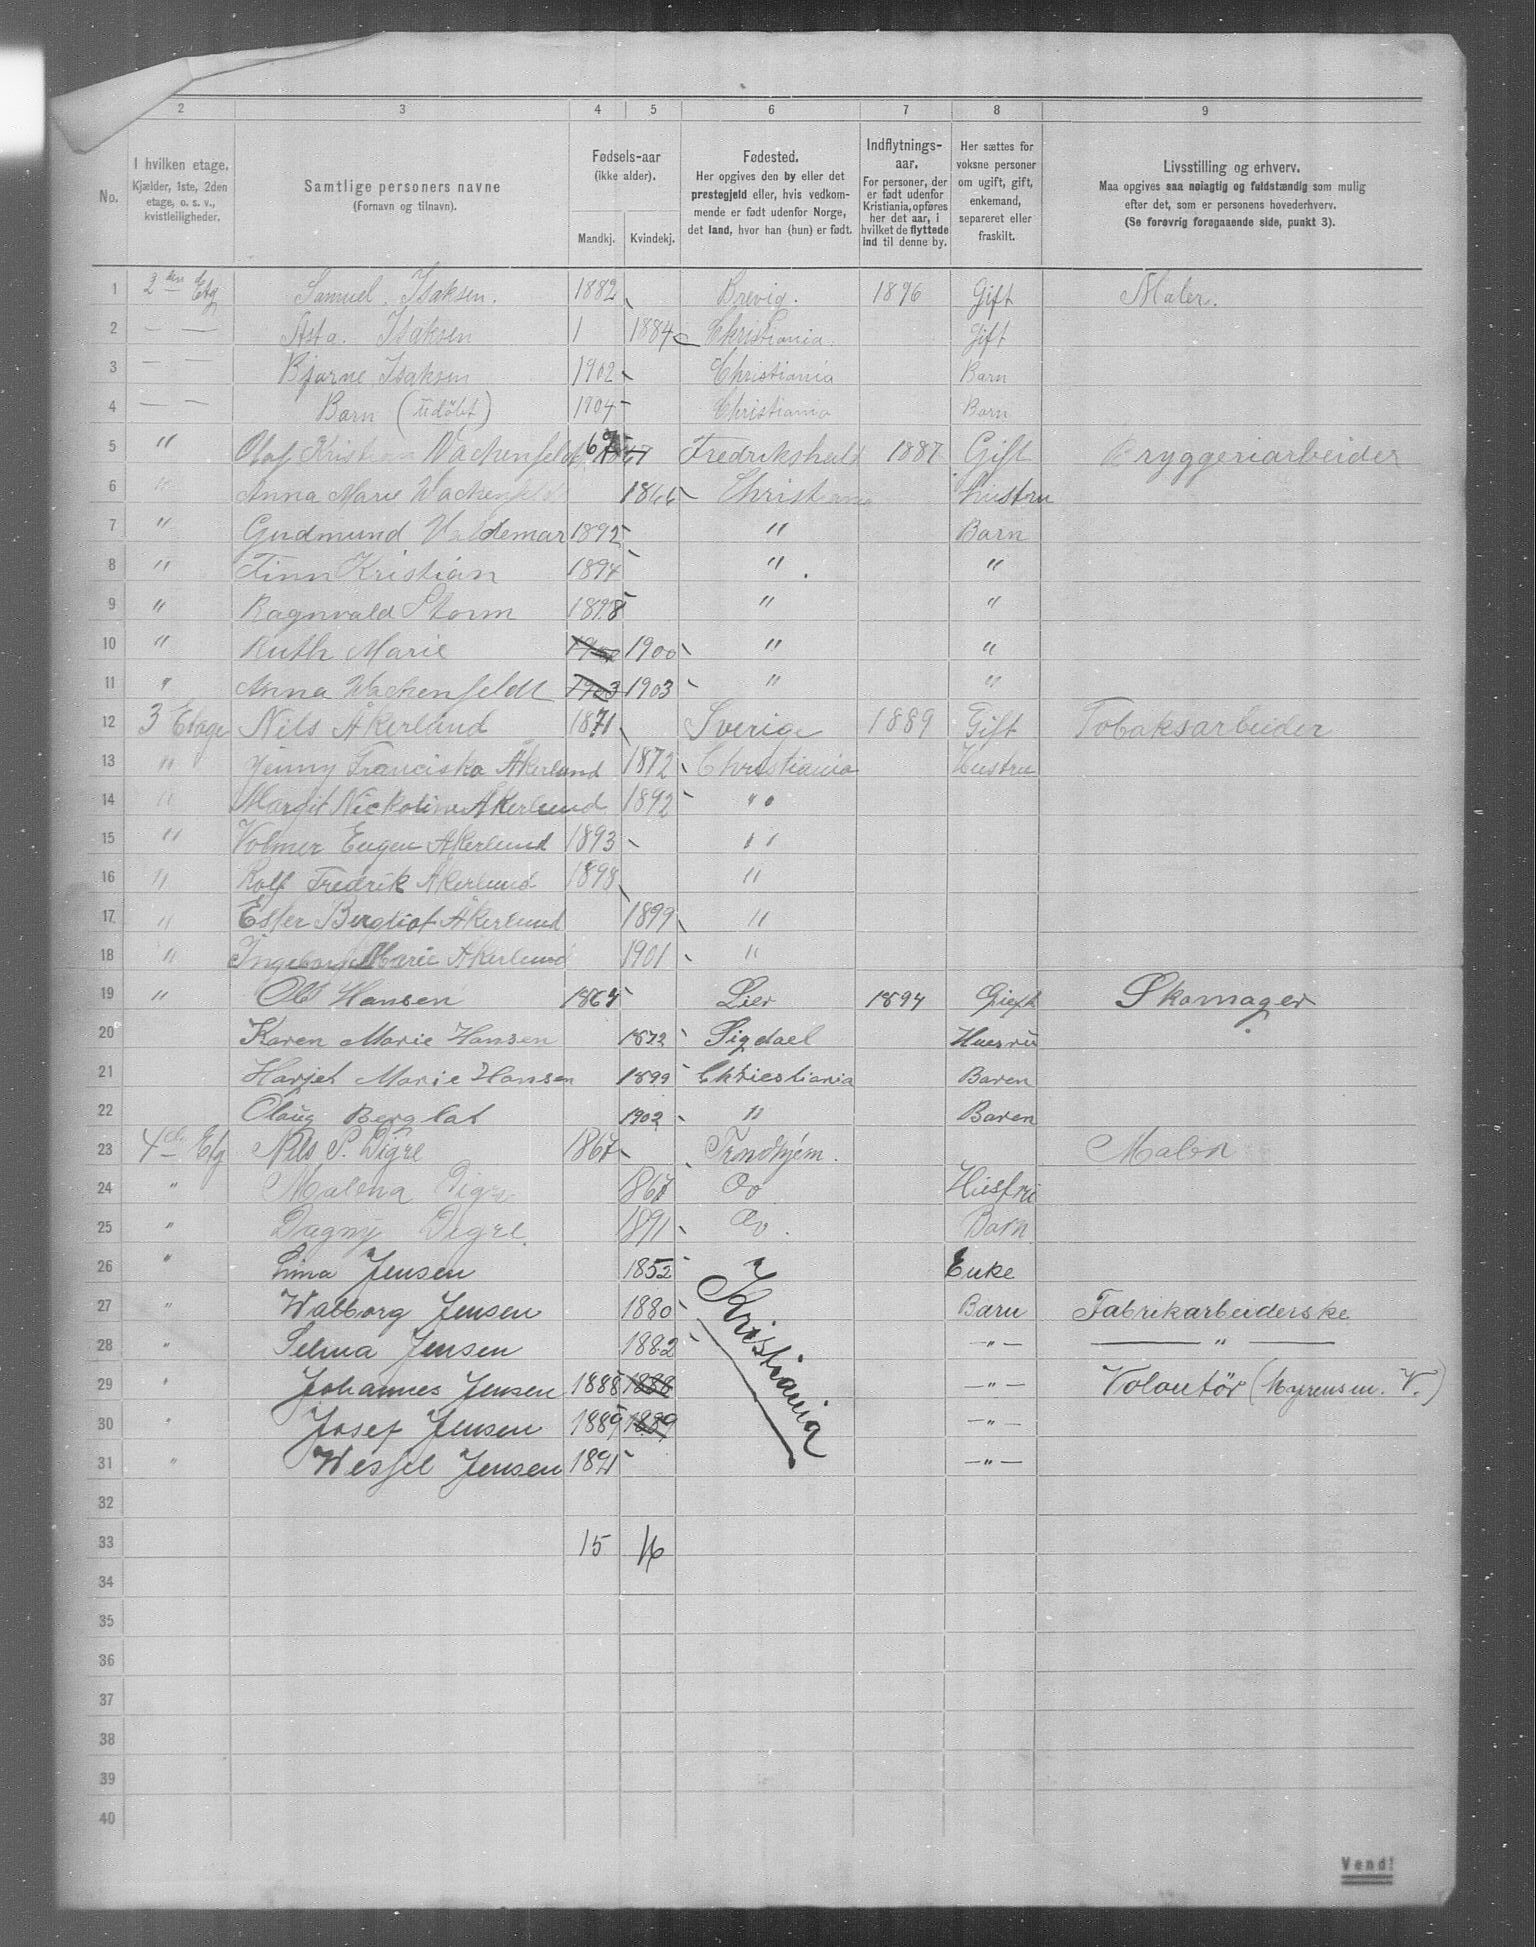 2 3 4 5 6 7 8 9
No.
I hvilken etage.
Kjælder, 1ste, 2den
etage, o. s. v.,
kvistleiligheder.
Samtlige personers navne
(Fornavn og tilnavn).
Fødsels-aar
(ikke alder).
Mandkj. Kvindekj.
Fødested.
Her opgives den by eller det
prestegjeld eller, hvis vedkom-
mende er født udenfor Norge,
det land, hvor han (hun) er født.
Indflytnings-
aar.
For personer, der
er født udenfor
Kristiania, opføres
her det aar, i
hvilket de flyttede
ind til denne by.
Her sættes for
voksne personer
om ugift, gift,
enkemand,
separeret eller
fraskilt.
Livsstilling og erhverv.
Maa opgives saa nøiagtig og fuldstændig som mulig
efter det, som er personens hovederhverv.
(Se forøvrig foregaaende side, punkt 3).
1 2den Etg Samuel Isaksen. 1882 Brevig. 1896 Gift Maler.
2 — — Asta Isaksen 1 1884 Christiania. Gift
3 — — Bjarne Isaksen 1902 Christiania Barn
4 — — Barn (udöbt) 1904 Christiania Barn
5 " Olaf Kristian Wackenfeldt 67 Fredrikshald 1887 Gift Bryggeriarbeider
6 " Anna Marie Wackenfeldt 1866 Christiania Hustru
7 " Gudmund Valdemar 1892 " Barn
8 " Finn Kristian 1894 " "
9 " Ragnvald Storm 1898 " "
10 " Ruth Marie 1900 " "
11 " Anna Wackenfeldt 1903 1903 " "
12 3 Etage Nils Åkerlund 1871 Sverige 1889 Gift Tobaksarbeider
13 " Jenny Franciska Åkerlund 1872 Christiania Hustru
14 " Margit Nickoline Åkerlund 1892 "
15 " Volmer Eugen Åkerlund 1893 "
16 " Rolf Fredrik Åkerlund 1898 "
17 " Ester Bergliot Åkerlund 1899 "
18 " Ingeborg Marie Åkerlund 1901 "
19 " Ole Hansen 1865 Lier 1894 Gieft Skomager
20 Karen Marie Hansen 1872 Sigdael Huesru
21 Harjet Marie Hansen 1899 Chriestiania Baren
22 Olaug Berglat 1902 " Baren
23 4de Etg Nils P. Digre 1867 Trondhjem. Maler
24 " Malena Digre 1867 Do Hustru
25 " Dagny Digre 1891 Do. Barn
26 " Lina Jensen 1852 Kristiania Enke
27 " Walborg Jensen 1880 Barn Fabrikarbeiderske
28 " Selma Jensen 1882 —"— —"—
29 " Johannes Jensen 1888 1888 —"— Volontör (Myrens m. V.)
30 " Josef Jensen 1889 1889 —"—
31 " Wessel Jensen 1891 —"—
32
33 15 16
34
35
36
37
38
39
40
Vend!